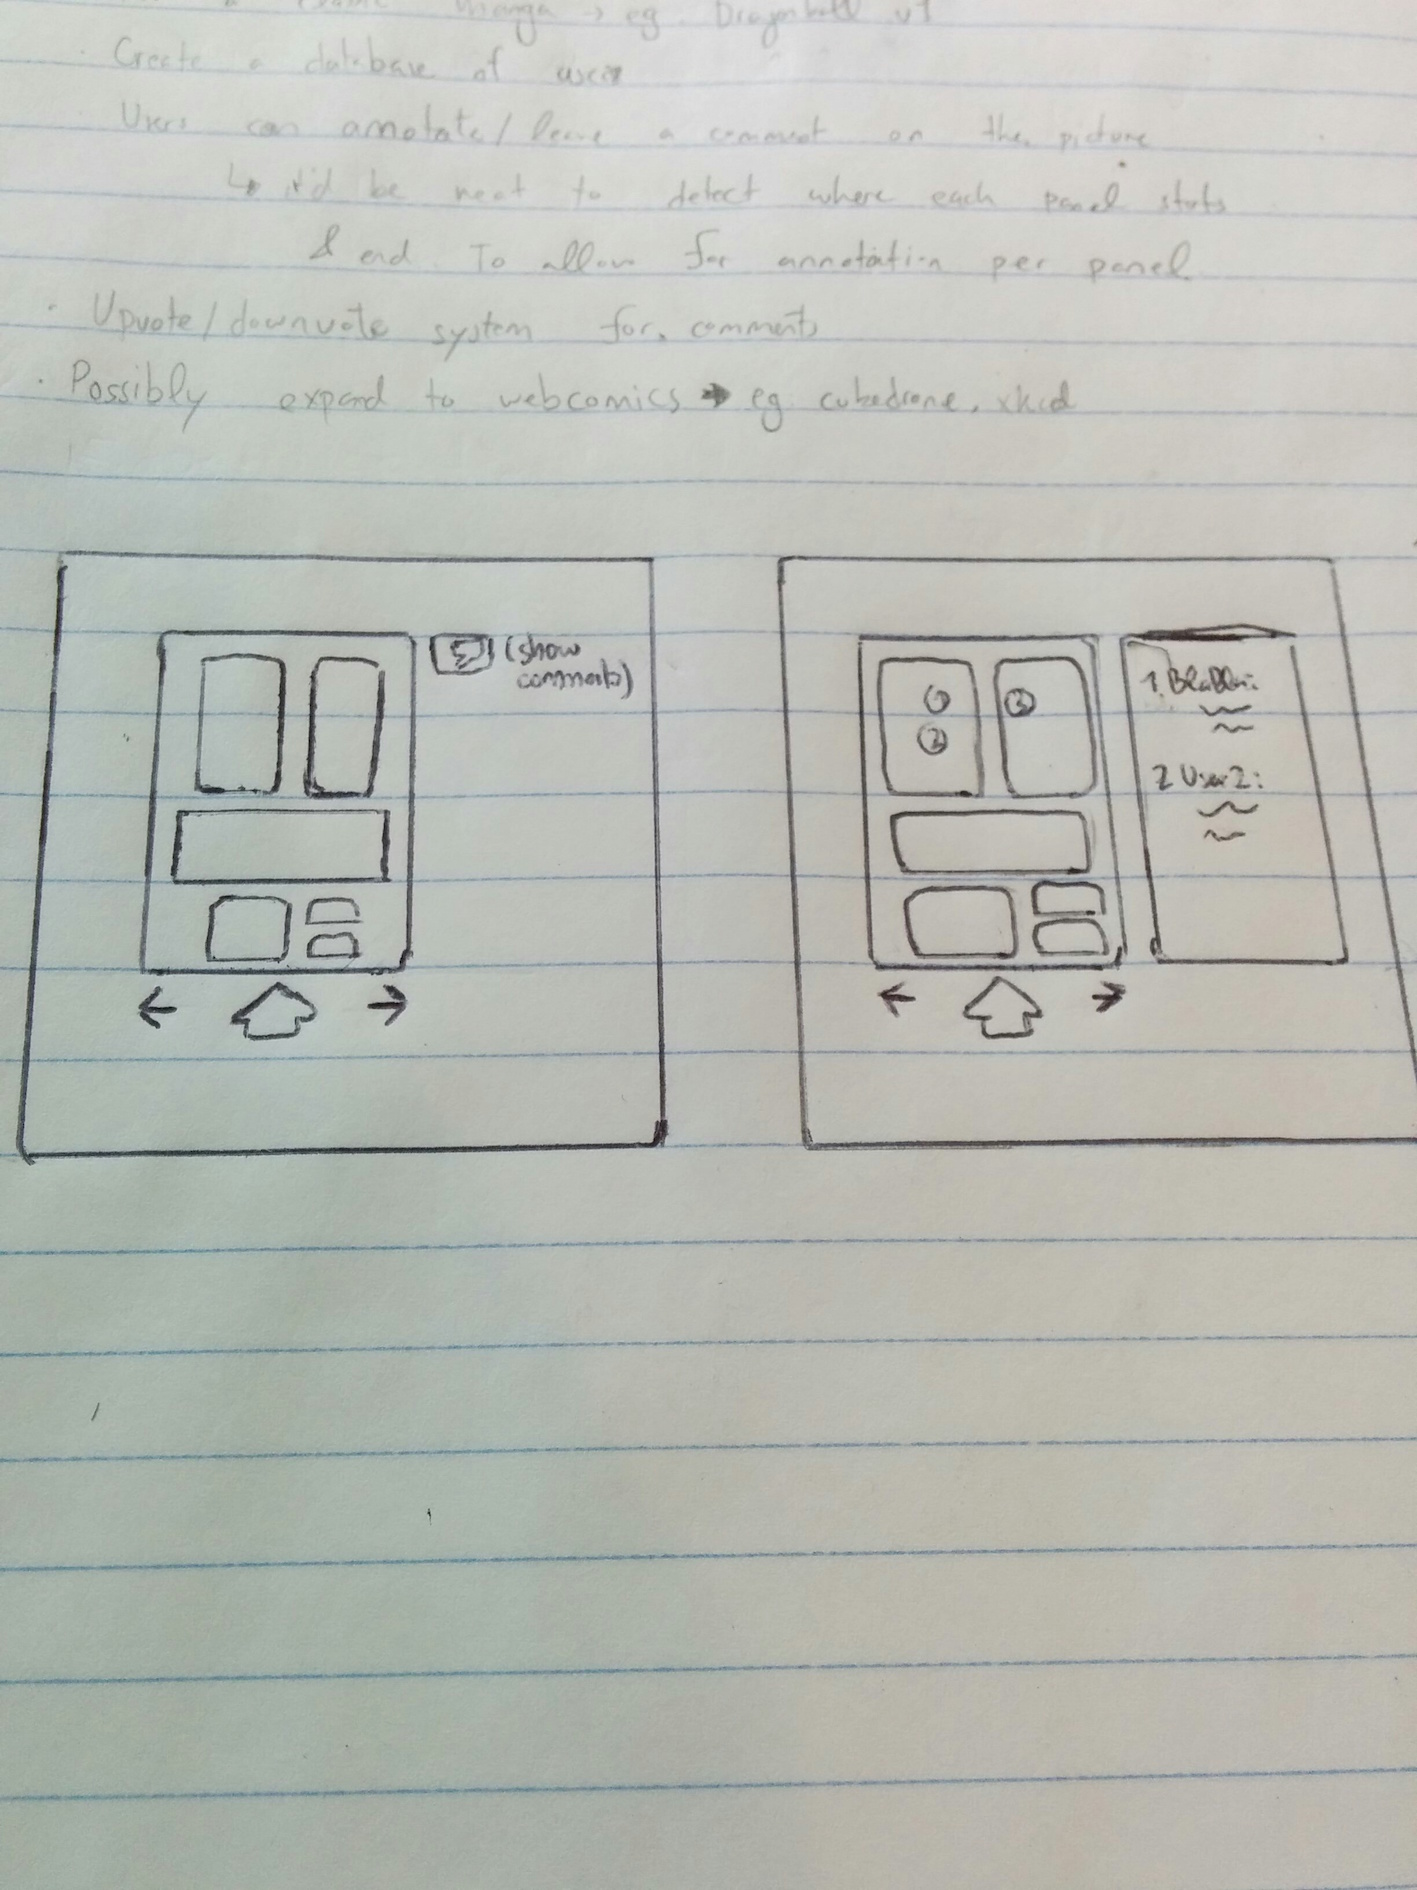 manga → eg. Dragonball v1
· Create a database of users
Users can annotate/leave a comment on the picture
↳ it'd be neat to detect where each panel starts
& end To allow for annotation per panel
· Upvote/downvote system for comments
· Possibly expand to webcomics → eg cubedrone, xkcd
(show
comments)
1
2
3
1. BlaBla:
2 User2: